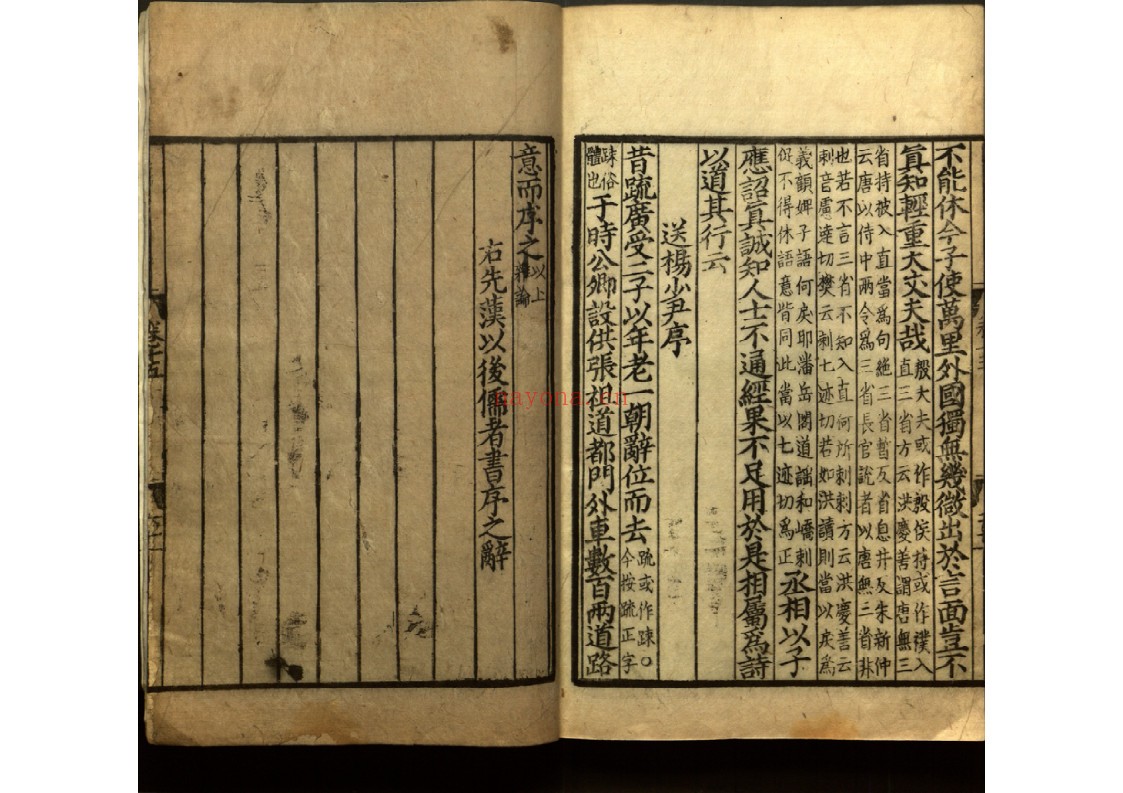 不能休今子使萬里外國獨無幾微出於言面豈不
眞知輕重大丈夫哉殷大夫或作殷侯持或作襆入直三省方云洪慶善謂唐無三
省持被入直當爲句絶三省暫反省息井反朱新仲云唐以侍中兩令爲三省長官説者以唐無三省非
也若不言三省不知入直何所刺刺方云洪慶善云刺音慮達切樊云刺七迹切若如洪讀則當以戾爲
義顧婢子語何戾耶潘岳閣道謡和嶠刺促不得休語意皆同此當以七迹切爲正丞相以子
應詔眞誠知人士不通經果不足用於是相屬爲詩
以道其行云
送楊少尹序
昔疏廣受二子以年老一朝辭位而去疏或作踈○今按疏正字
踈俗體也于時公卿設供張祖道都門外車數百兩道路
意而序之以上雜論
右先漢以後儒者書序之辭
卷二十五
nayona.cn